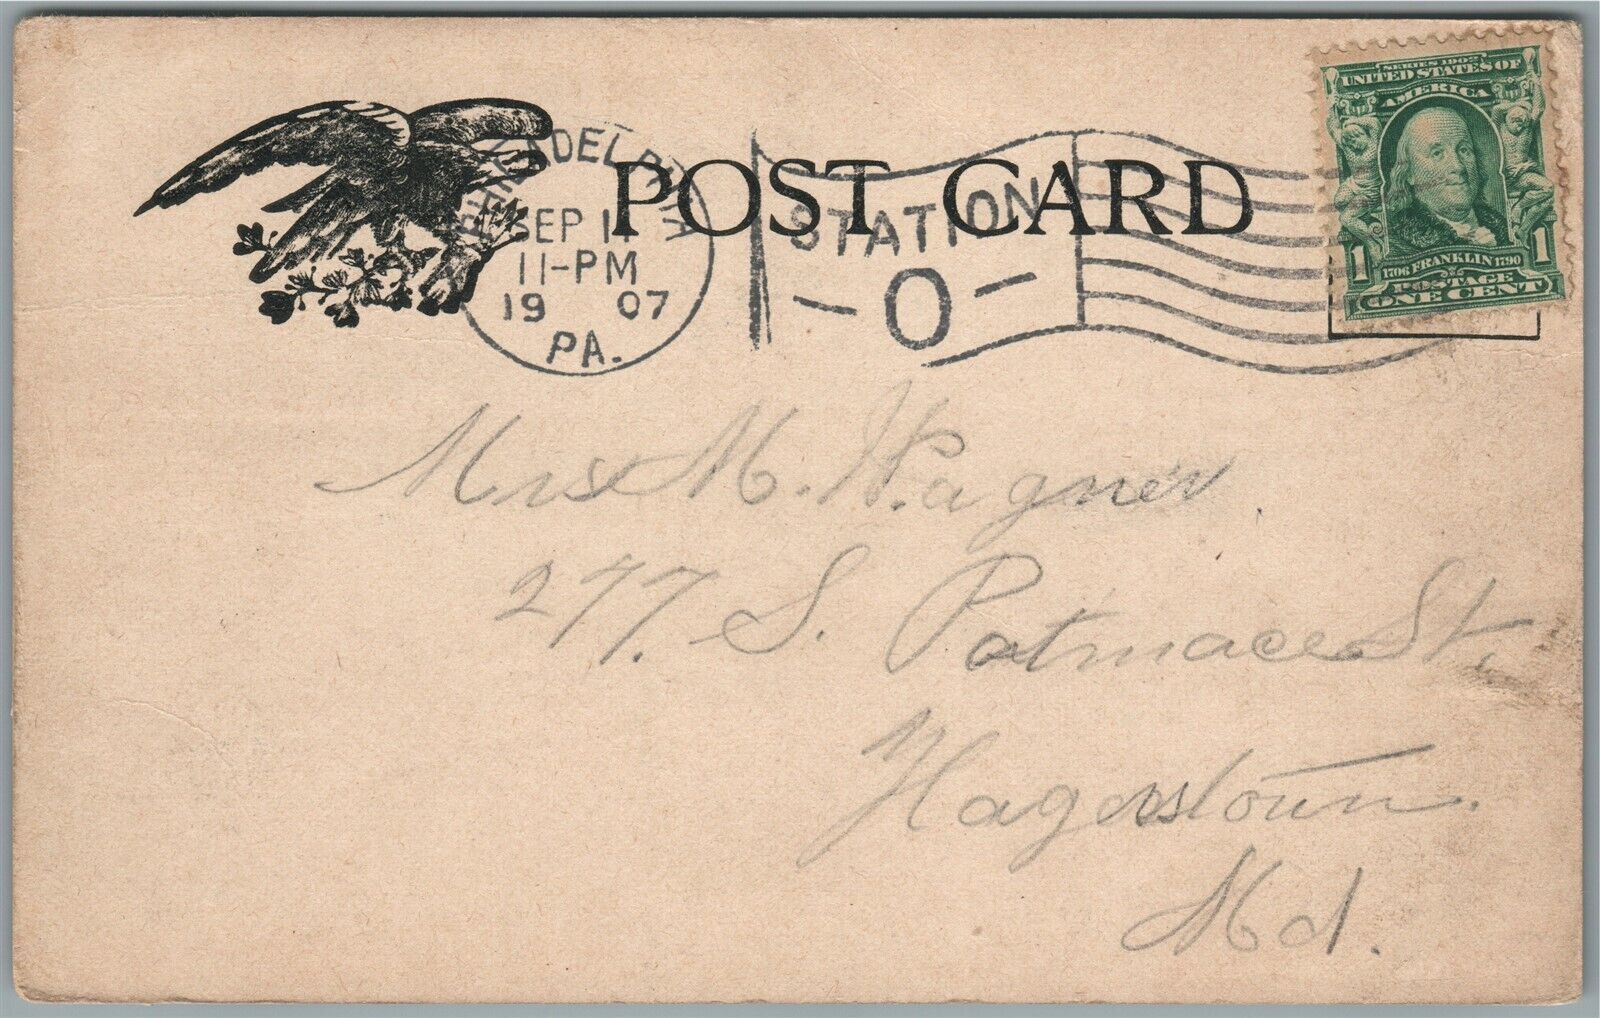 POST CARD
PHILADELPHIA
SEP 1
11-PM
19 07
PA.
STATION
- O -
SERIES 1902
UNITED STATES OF
AMERICA
1 1
1706 FRANKLIN 1790
POSTAGE
ONE CENT
Mrs M. Wagner
277. S. Potmace St.
Hagerstown.
Md.